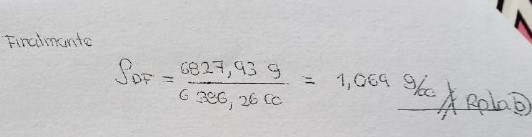 Finalmente
ρDF = 6827,93 g / 6386,26 cc = 1,069 g/cc // Rpta b)